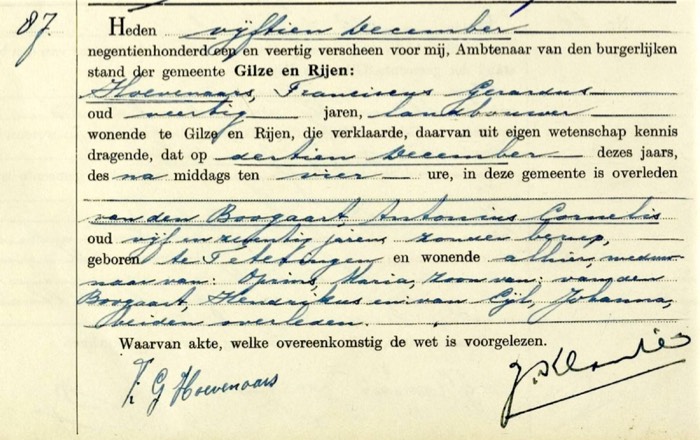 87.
Heden vijftien December
negentienhonderd een en veertig verscheen voor mij, Ambtenaar van den burgerlijken
stand der gemeente Gilze en Rijen:
Hoevenaars, Franciscus Gerardus
oud veertig jaren, landbouwer
wonende te Gilze en Rijen, die verklaarde, daarvan uit eigen wetenschap kennis
dragende, dat op dertien December dezes jaars,
des na middags ten vier ure, in deze gemeente is overleden
van den Boogaart, Antonius Cornelis
oud vijf en zeventig jaren zonder beroep,
geboren te Teteringen en wonende alhier, weduw-
naar van: Oprins, Maria, zoon van: van den
Boogaart, Hendrikus en van Eijl, Johanna,
beiden overleden.
Waarvan akte, welke overeenkomstig de wet is voorgelezen.
F. G Hoevenaars